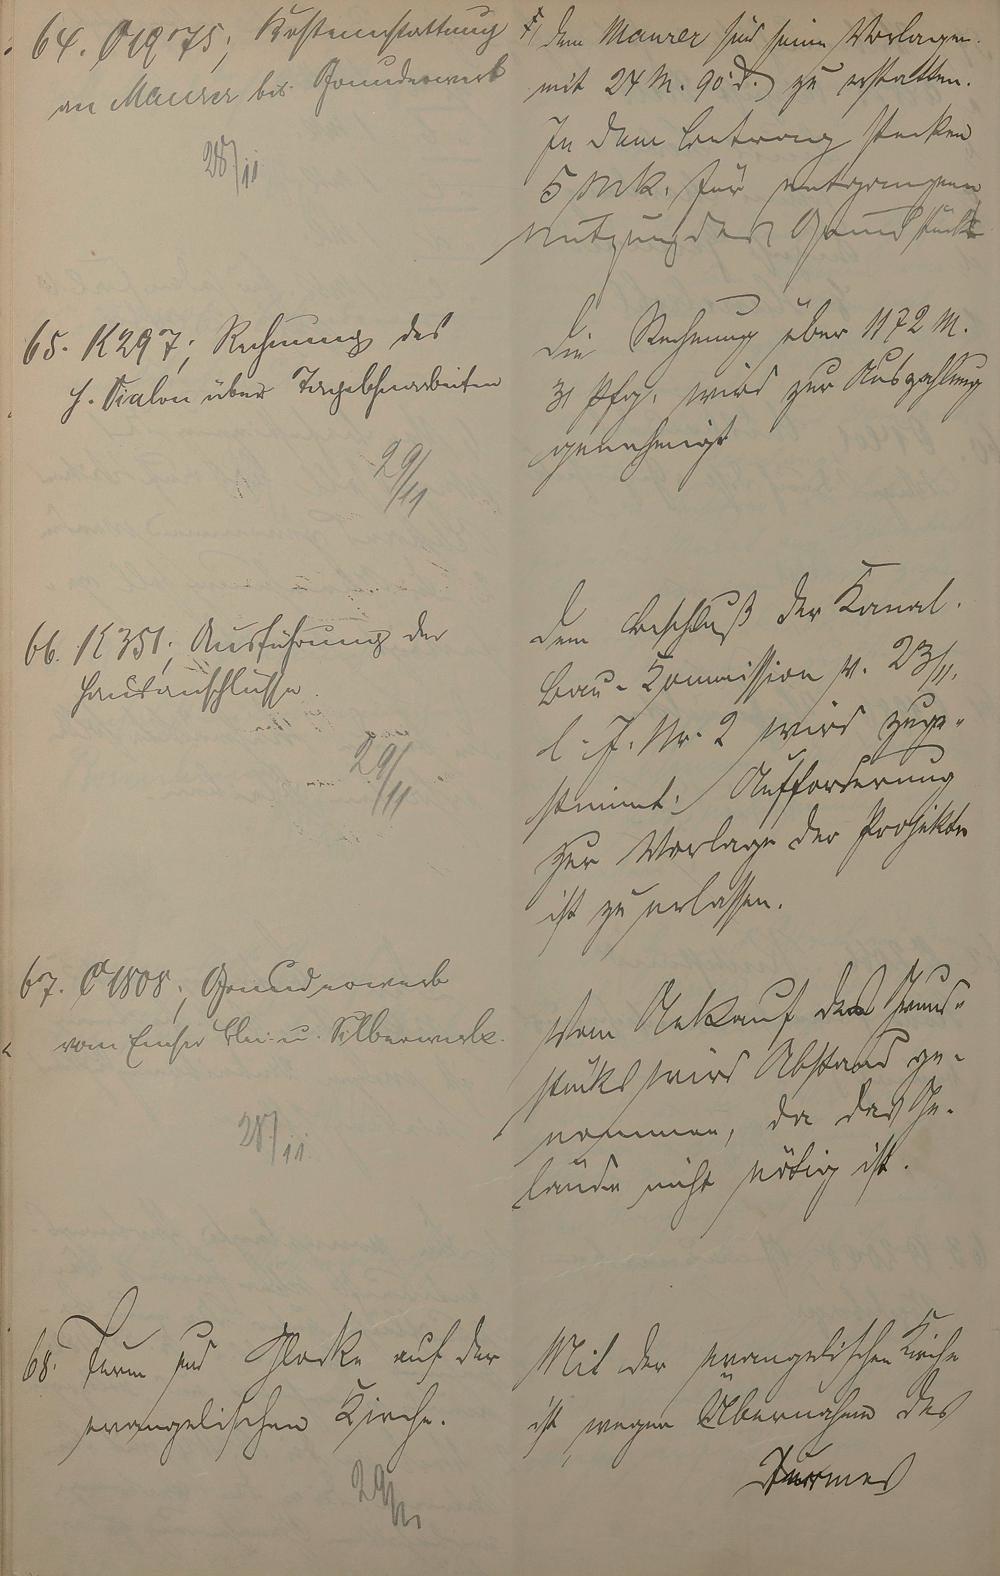 64. O 1975; Kostenerstattung
an Maurer bei Grunderwerb
28/11
dem Maurer sind seine Vorlagen
mit 24 M. 90 d. zu erstatten.
In dem Betrag stecken
5 Mk. für entgangene
Nutzung des Grundstücks
65. K 297; Rechnung des
H. Kalon über Tagelohnarbeiten
29/11
Die Rechnung über 1172 M.
31 Pfg. wird zur Auszahlung
genehmigt
66. K 351; Ausführung der
Hausanschlüsse.
29/11
Dem Beschluß der Kanal-
bau-Kommission v. 23/11.
l. J. Nr. 2 wird zuge-
stimmt. Aufforderung
zur Vorlage der Projekte
ist zu erlassen.
67. O 1808; Grunderwerb
vom Emser Blei- u. Silberwerk.
28/11
Vom Ankauf des Grund-
stücks wird Abstand ge-
nommen, da das Ge-
lände nicht nötig ist.
68. Turm und Glocke auf der
evangelischen Kirche.
29/11
Mit der evangelischen Kirche
ist wegen Übernahme des
Turmes